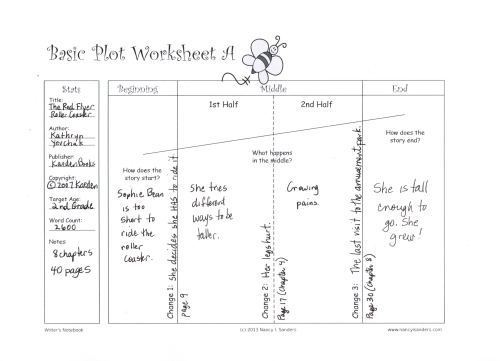 Basic Plot Worksheet A
Stats
Title:
The Red Flyer
Roller Coaster
Author:
Kathryn
Yevchak
Publisher
Kaeden Books
Copyright:
© 2007 Kaeden
Target Age:
2nd Grade
Word Count:
2600
Notes
8 chapters
40 pages
Beginning
How does the
story start?
Sophie Bean
is too
short to
ride the
roller
coaster.
Change 1: She decides she HAS to ride it
page 9
Middle
1st Half
2nd Half
What happens
in the middle?
She tries
different
ways to be
taller.
Change 2: Her legs hurt.
Page 17 (Chapter 4)
Growing
pains.
Change 3: The last visit to the amusement park.
Page 30 (Chapter 8)
End
How does the
story end?
She is tall
enough to
go. She
grew!
Writer's Notebook
(c) 2013 Nancy I. Sanders
www.nancyisanders.com